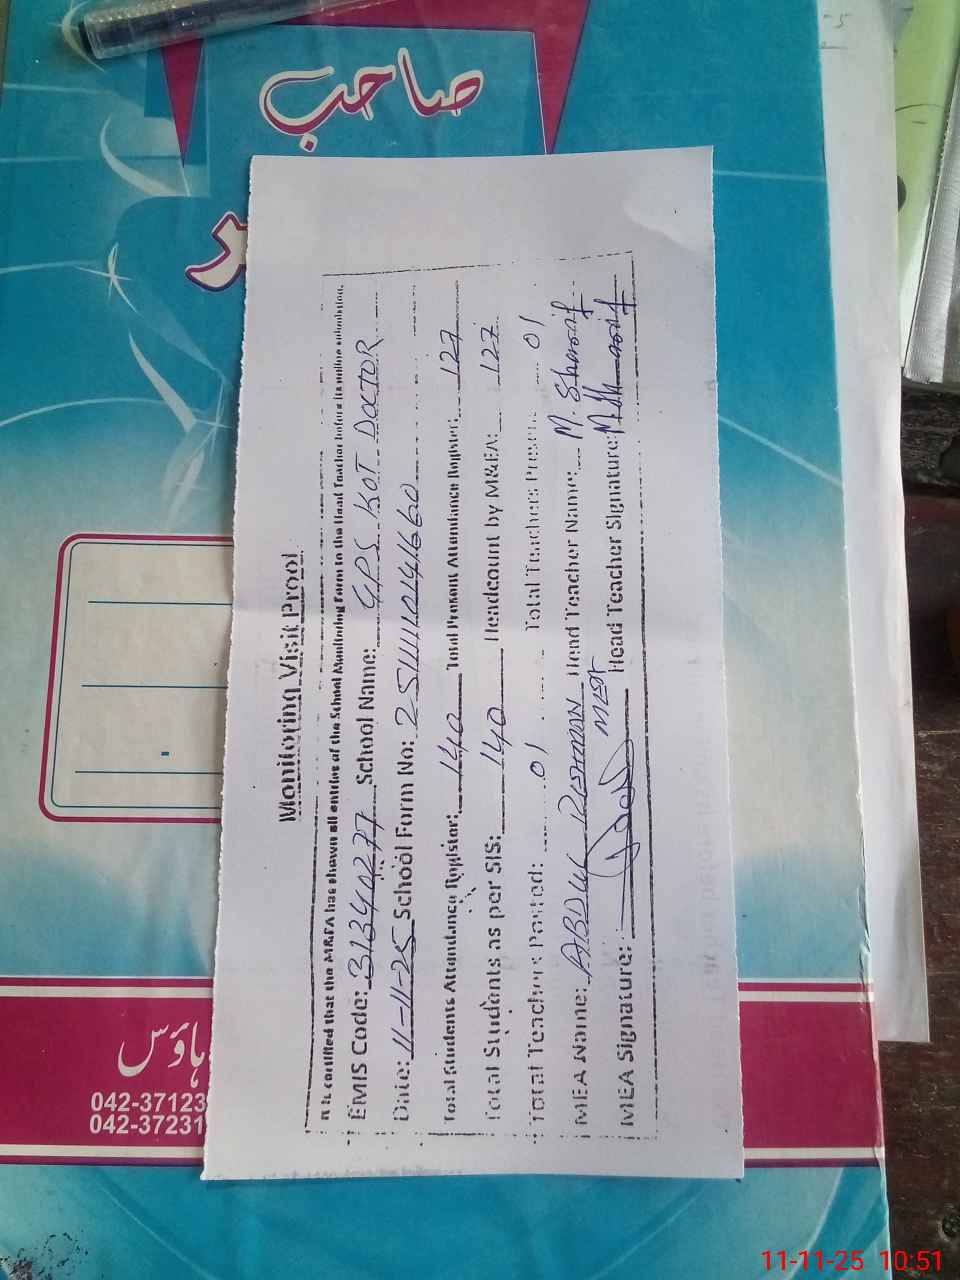 صاحب
Monitoring Visit Proof
It is certified that the M&EA has shown all entries of the School Monitoring Form to the Head Teacher before its online submission.
EMIS Code: 31340277 School Name: GPS KOT DOCTOR
Date: 11-11-25 School Form No:
Total Students Attendance Register: 140 Total Present Attendance Register: 127
Total Students as per SIS: 140 Headcount by M&EA: 127
Total Teachers Posted: 01 Total Teachers Present 01
MEA Name: ABDUL REHMAN Head Teacher Name: M. Sharif
MEA Signature: Head Teacher Signature:
ہاؤس
042-37123
042-37231
11-11-25 10:51